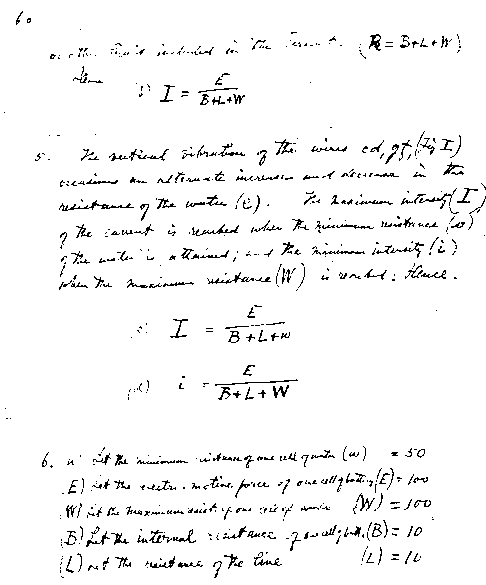 60
included in the (R = B+L+W)
Hence I = E / B+L+W
5. The vertical vibration of the wires cd, gf, (Fig I)
occasions an alternate increase and decrease in the
resistance of the water (C). The maximum intensity (I)
of the current is reached when the minimum resistance (w)
of the water is attained; and the minimum intensity (i)
when the maximum resistance (W) is reached: Hence.
I = E / B+L+w
i = E / B+L+W
6. Let the minimum resistance of one cell of water (w) = 50
E) Let the electro-motive force of one cell of battery (E) = 100
W) Let the maximum resist. of one cell of water (W) = 100
(B) Let the internal resistance of one cell of batt. (B) = 10
(L) Let the resistance of the line (L) = 10